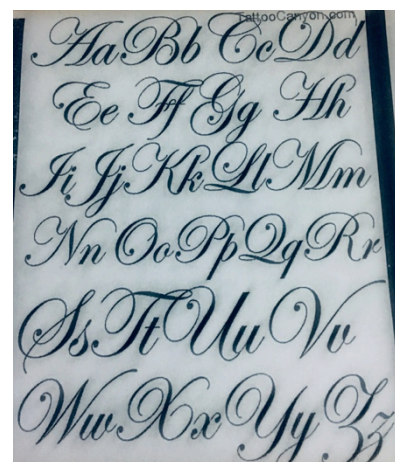 TattooCanyon.com
Aa Bb Cc Dd
Ee Ff Gg Hh
Ii Jj Kk Ll Mm
Nn Oo Pp Qq Rr
Ss Tt Uu Vv
Ww Xx Yy Zz